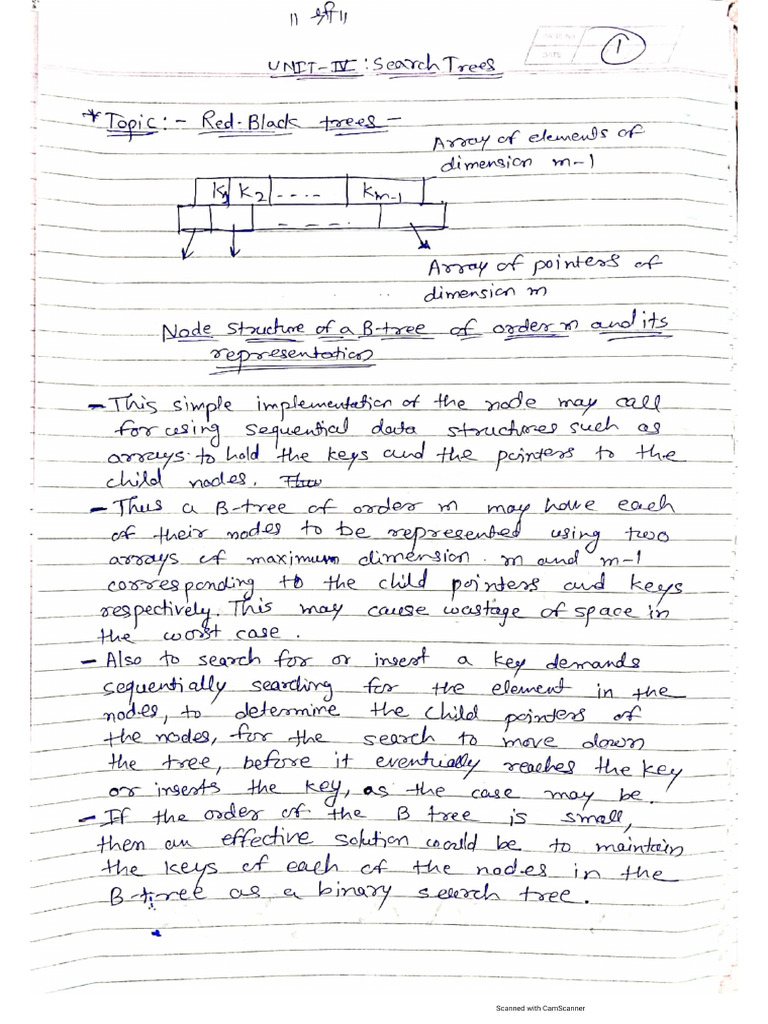 ॥ श्री॥
1
UNIT-IV : Search Trees
* Topic :- Red-Black trees -
Array of elements of
dimension m-1
K1 K2 ---- Km-1
- - - -
Array of pointers of
dimension m
Node structure of a B-tree of order m and its
representation
- This simple implementation of the node may call
for using sequential data structures such as
arrays to hold the keys and the pointers to the
child nodes. Thus
- Thus a B-tree of order m may have each
of their nodes to be represented using two
arrays of maximum dimension m and m-1
corresponding to the child pointers and keys
respectively. This may cause wastage of space in
the worst case.
- Also to search for or insert a key demands
sequentially searching for the element in the
nodes, to determine the child pointers of
the nodes, for the search to move down
the tree, before it eventually reaches the key
or inserts the key, as the case may be.
- If the order of the B tree is small,
then an effective solution would be to maintain
the keys of each of the nodes in the
B-tree as a binary search tree.
Scanned with CamScanner